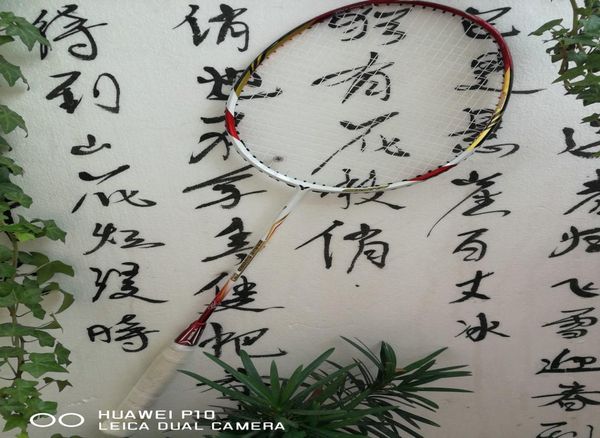 春归飞雪迎春到
已是悬崖百丈冰
犹有花枝俏
俏也不争春只把
待到山花烂漫時
HUAWEI P10
LEICA DUAL CAMERA